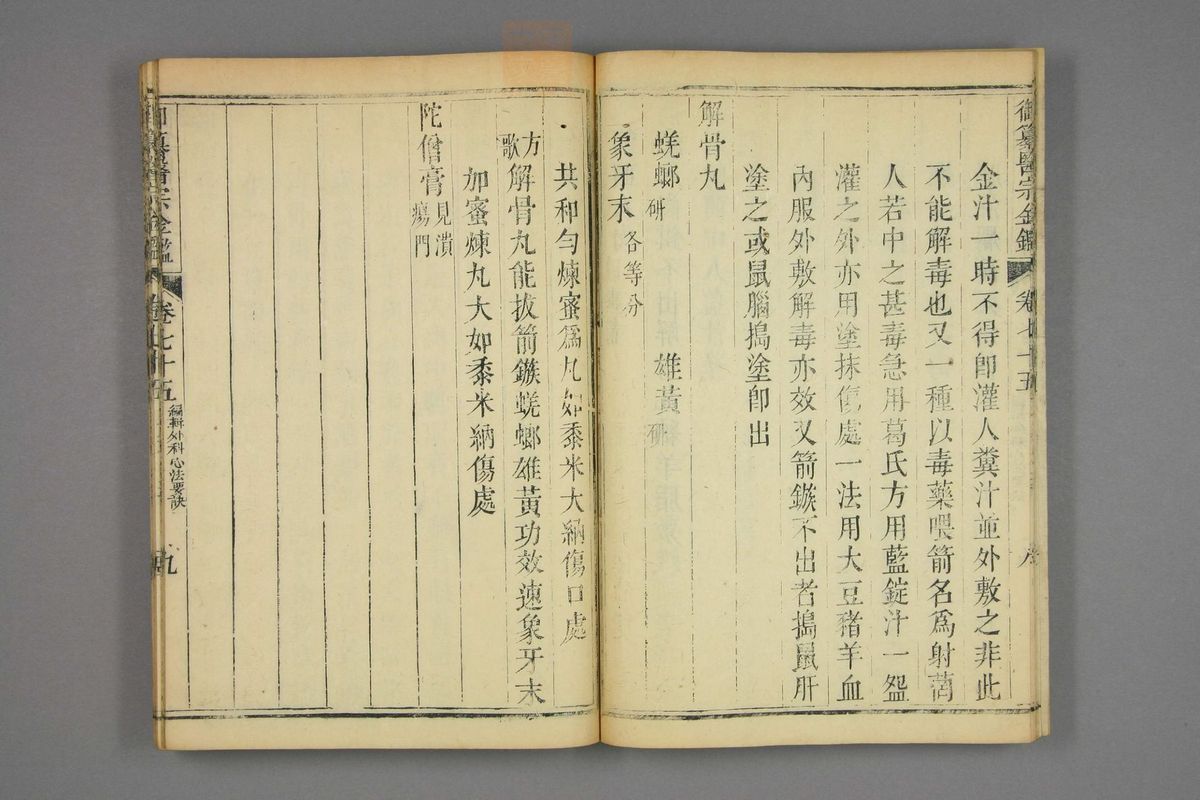 御纂醫宗金鑑 卷七十五 八
金汁一時不得卽灌人糞汁並外敷之非此
不能解毒也又一種以毒藥喂箭名爲射䓾
人若中之甚毒急用葛氏方用藍錠汁一盌
灌之外亦用塗抹傷處一法用大豆豬羊血
內服外敷解毒亦效又箭鏃不出者搗鼠肝
塗之或鼠腦搗塗卽出
解骨丸
蜣螂研 雄黃研
象牙末各等分
共和勻煉蜜爲丸如黍米大納傷口處
方歌 解骨丸能拔箭鏃蜣螂雄黃功效速象牙末
加蜜煉丸大如黍米納傷處
陀僧膏見潰瘍門
御纂醫宗金鑑 卷七十五 編輯外科心法要訣 九